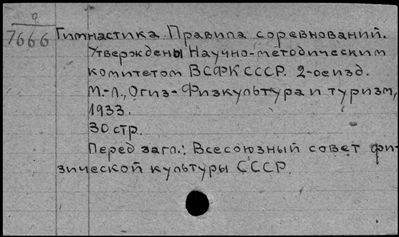 0
7666 Гимнастика. Правила соревнований.
Утверждены Научно-методическим
комитетом ВСФК СССР. 2-ое изд.
М.-Л., Огиз-Физкультура и туризм,
1933.
30 стр.
Перед загл.: Всесоюзный совет фи-
зической культуры СССР.